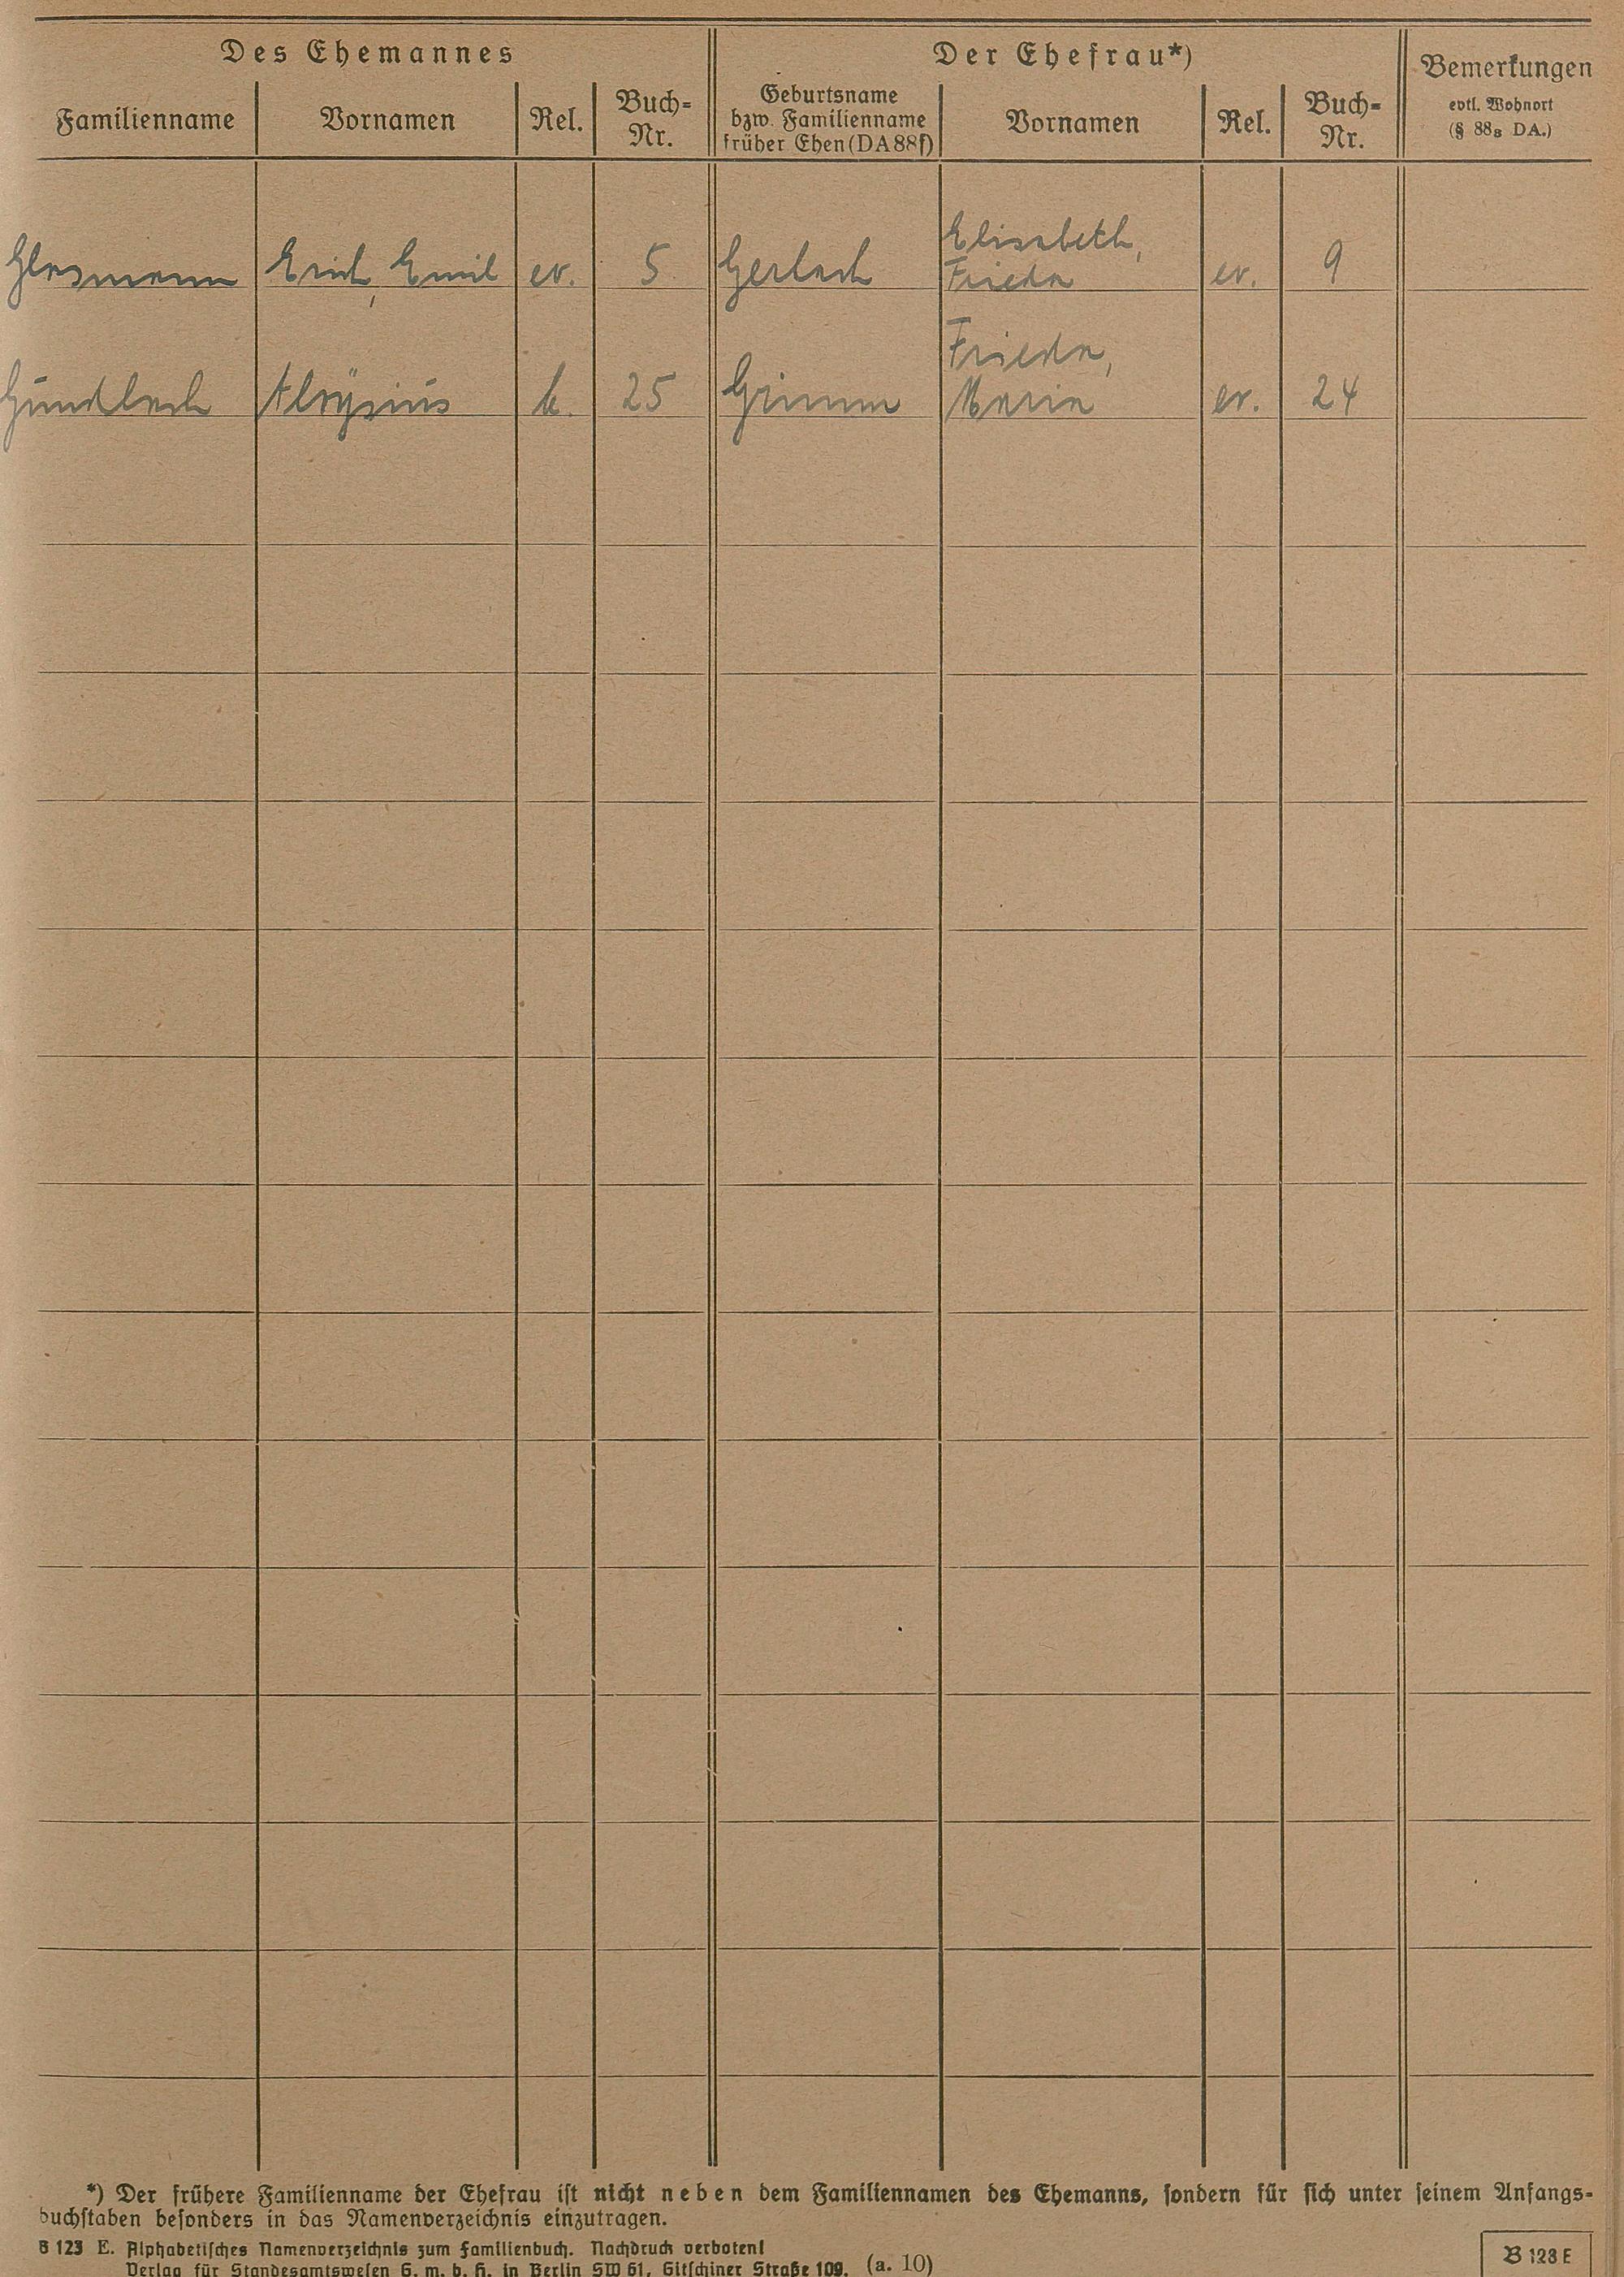 Des Ehemannes
Der Ehefrau*)
Bemerkungen
evtl. Wohnort
(§ 88₃ DA.)
Familienname
Vornamen
Rel.
Buch-
Nr.
Geburtsname
bzw. Familienname
früher Ehen (DA 88f)
Vornamen
Rel.
Buch-
Nr.
Glasmann Erich, Emil ev. 5 Gerlach Elisabeth,
Frieda ev. 9
Gundlach Aloysius k. 25 Grimm Frieda,
Maria ev. 24
*) Der frühere Familienname der Ehefrau ist nicht neben dem Familiennamen des Ehemanns, sondern für sich unter seinem Anfangs-
buchstaben besonders in das Namenverzeichnis einzutragen.
B 123 E. Alphabetisches Namenverzeichnis zum Familienbuch. Nachdruck verboten!
Verlag für Standesamtswesen G. m. b. H. in Berlin SW 61, Gitschiner Straße 109. (a. 10)
B 123 E